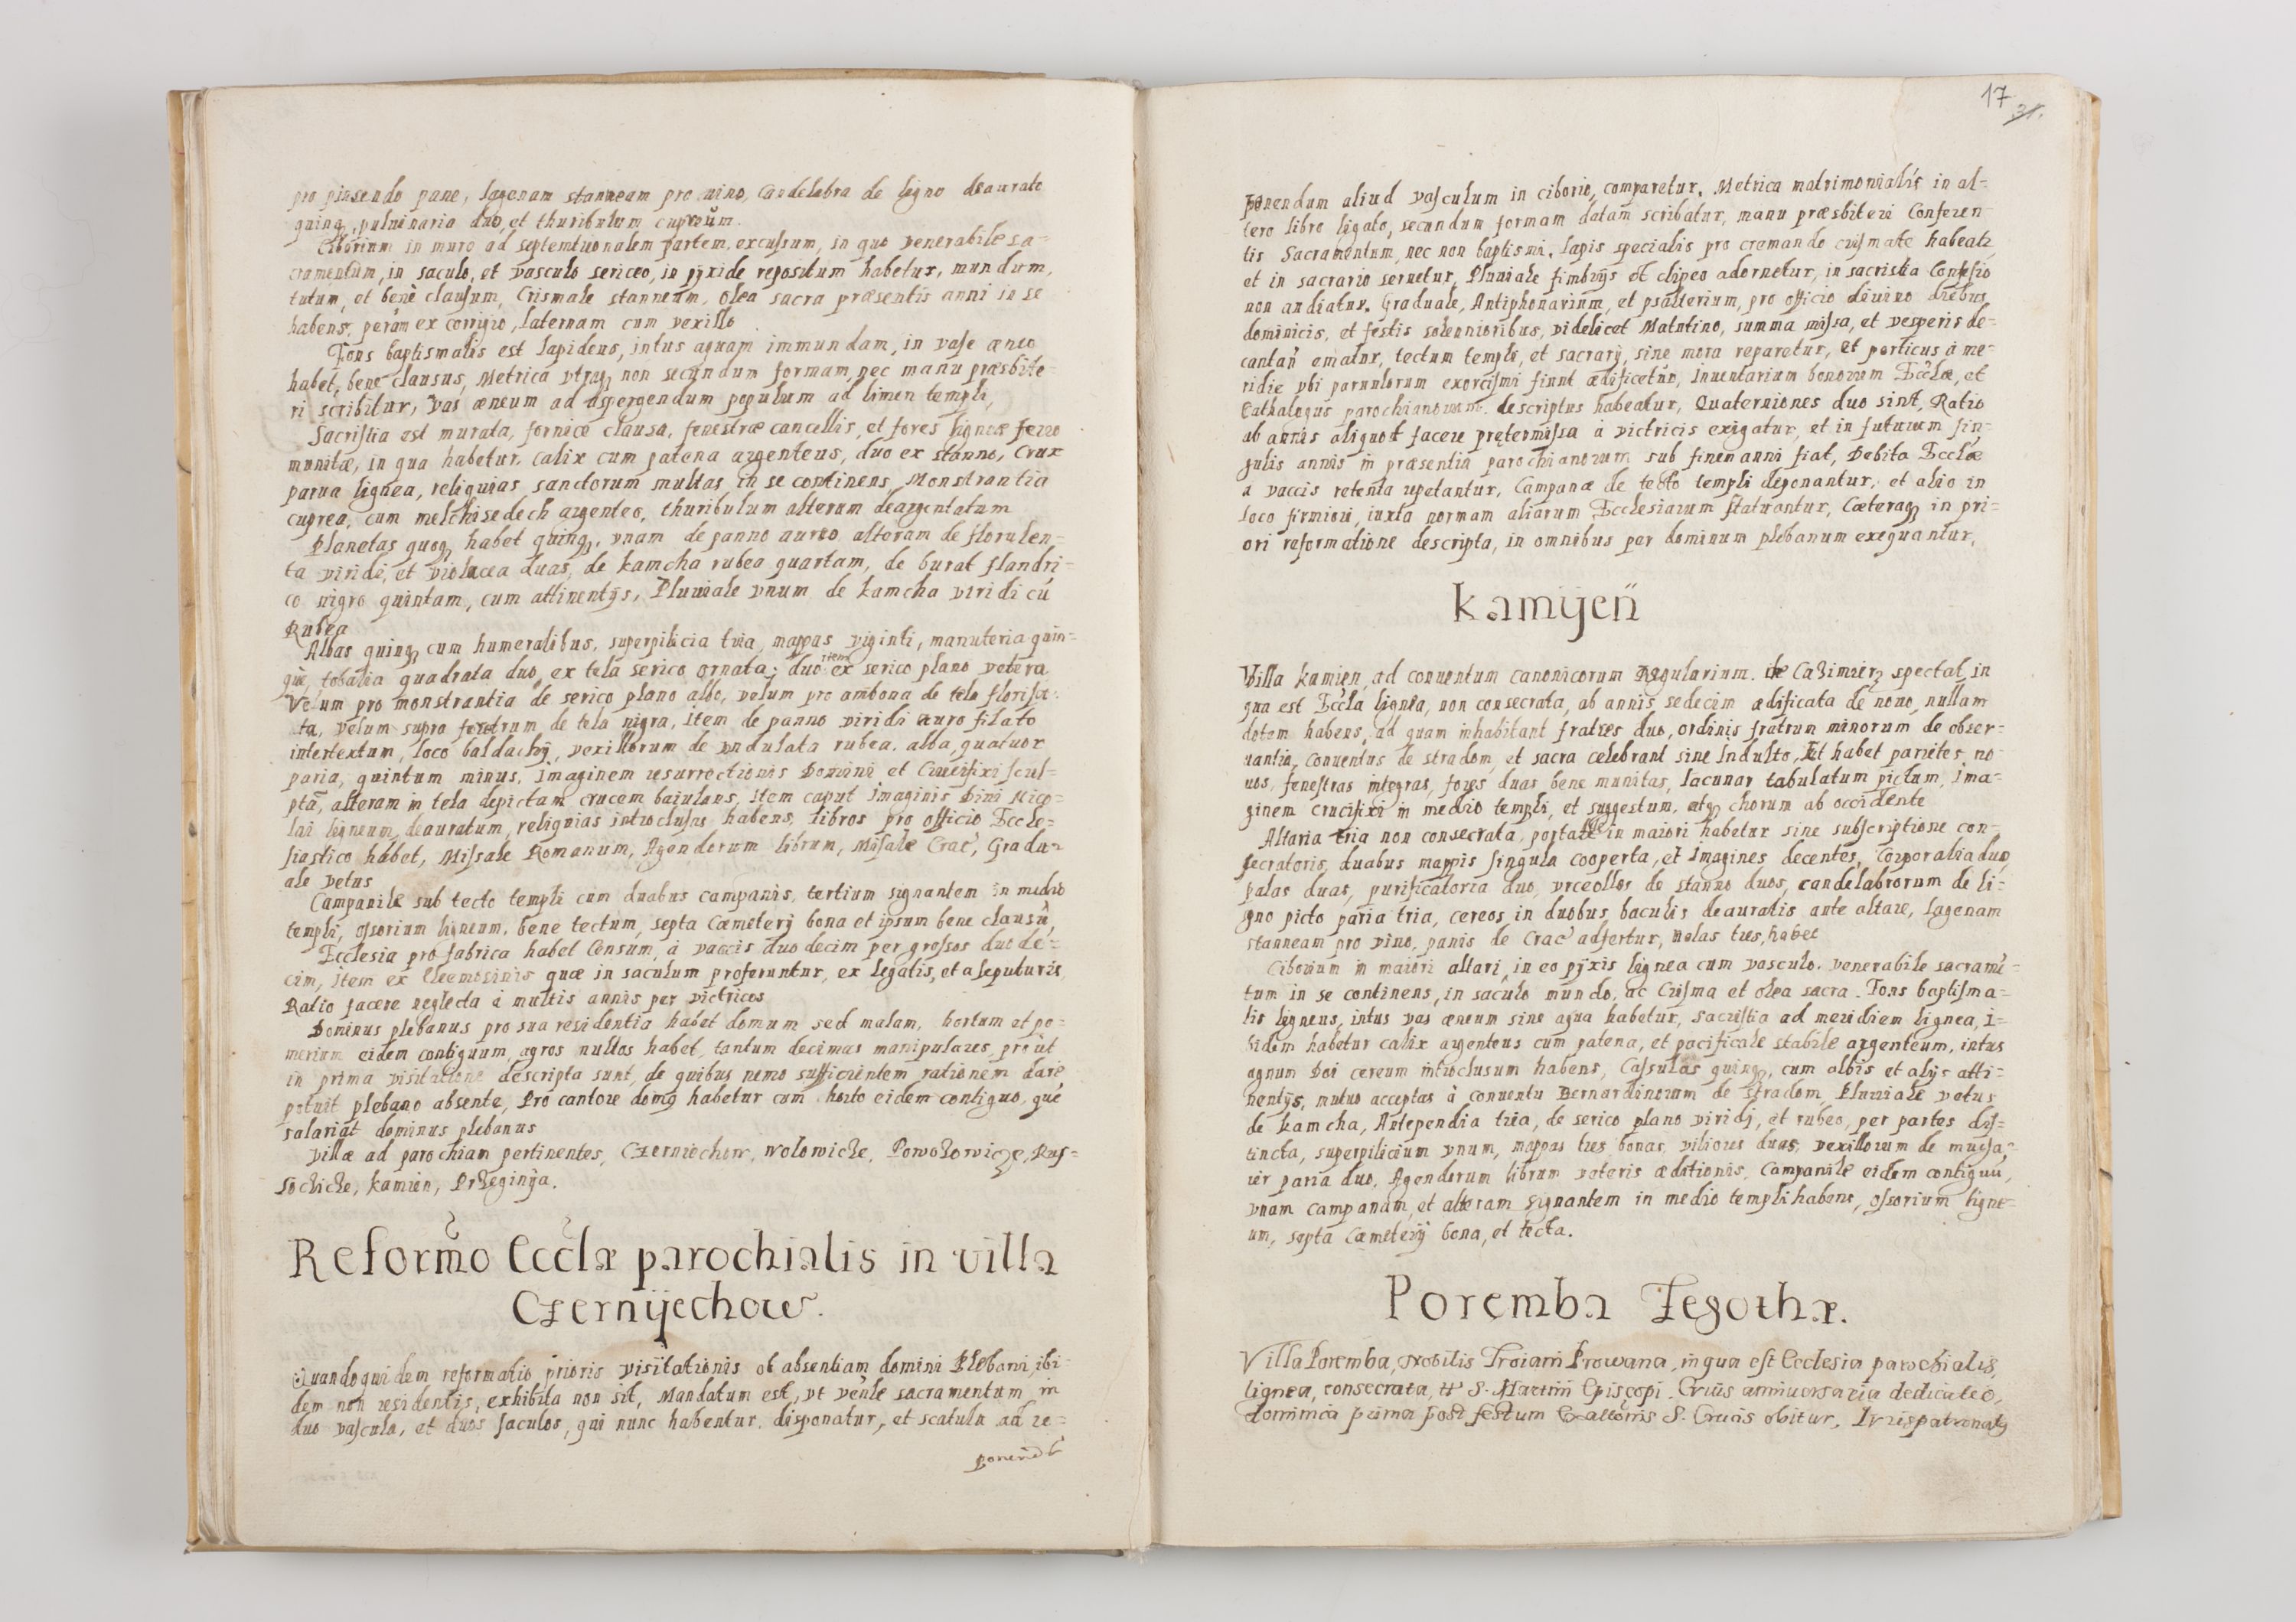 pro pinsendo pane, lagenam stanneam pro uino, Candelabra de ligno deaurato
quinq, puluinaria duo, et thuribulum cupreum.
Ciborium in muro ad septemtrionalem partem, excussum, in quo venerabile sa=
cramentum, in saculo, et vasculo sericeo, in pyxide repositum habetur, mundum,
tutum, et benè clausum, Crismale stanneum, olea sacra præsentis anni in se
habens, peram ex corrigio, laternam cum vexillo
Fons baptismalis est lapideus, intus aquam immundam, in vase æneo
habet, bene clausus, Metrica vtraq non secundum formam, nec manu præsbite=
ri scribitur, vas æneum ad aspergendum populum ad limen templi,
Sacristia est murata, fornice clausa, fenestræ cancellis, et fores ligneæ ferro
munitæ, in qua habetur, calix cum patena argenteus, duo ex stanno, Crux
parua lignea, reliquias sanctorum multas in se continens, Monstrantia
cuprea, cum melchisedech argenteo, thuribulum alterum deargentatum
Planetas quoq habet quinq, vnam de panno aureo alteram de florulen=
ta viridi, et violacea duas, de kamcha rubea quartam, de burat flandri=
co nigro quintam, cum attinentijs, Pluuiale vnum de kamcha viridi cũ
Rubea
Albas quinq cum humeralibus, superpilicia tria, mappas viginti, manuteria quin=
què, tobalia quadrata duo, ex tela serico ornata; duo item ex serico plano vetera
Velum pro monstrantia de serico plano albo, velum pro ambona de tela florisa=
ta, velum supro feretrum de tela nigra, item de panno viridi auro filato
intertextum, loco baldachij, vexillorum de vndulata rubea, alba, quatuor
paria, quintum minus, Imaginem resurrectionis Domini et Crucifixi scul=
ptã, alteram in tela depictam crucem baiulans, item caput imaginis Diui Nico=
lai ligneum, deauratum, reliquias introclusas habens, libros pro officio Eccle=
siastico habet, Missale Romanum, Agendorum librum, Missale Crac, Gradu=
ale vetus
Campanile sub tecto templi cum duabus campanis, tertium signantem in medio
templi, Ossorium ligneum, bene tectum, septa Cæmeterij bona et ipsum bene clausũ,
Ecclesia pro fabrica habet Censum, à vaccis duodecim per grossos duode=
cim, item ex Eleemosinis quæ in saculum proferuntur, ex legatis, et a sepulturis
Ratio facere neglecta à multis annis per victrices
Dominus plebanus pro sua residentia habet domum sed malam, hortum et po=
merium eidem contiguum, agros nullos habet, tantum decimas manipulares, prout
in prima visitatione descripta sunt, de quibus nemo sufficientem rationem dare
potuit plebano absente, Pro cantore domus habetur cum horto eidem contiguo, que
salariat dominus plebanus
Villæ ad parochiam pertinentes, Czerniechow, Wolowicze, Powolowicze, Rus=
soczicze, kamien, Przeginija.
Reformõ Ecclæ parochialis in villa
Czernijechow.
Quandoquidem reformatio prioris visitationis ob absentiam domini Plebani, ibi=
dem non residentis, exhibita non sit, Mandatum est, vt venle sacramentum in
duo vascula, et duos saculos, qui nunc habentur, disponatur, et scatula ad re=
ponend
17
31.
ponendum aliud vasculum in ciborio, comparetur. Metrica matrimonialis in al=
tero libro ligato, secundum formam datam scribatur, manu præsbiteri Conferen
tis Sacramentum, nec non baptismi, lapis specialis pro cremando crismate habeatr
et in sacrario seruetur, Pluuiale fimbrijs et clipeo adornetur, in sacristia Confesio
non audiatur. Graduale, Antiphonarium, et psalterium, pro officio diuino diebus
dominicis, et festis solennioribus, videlicet Matutino, summa missa, et vesperis de=
cantan ematur, tectum templi, et sacrarij, sine mora reparetur, et porticus à me=
ridie vbi paruulorum exorcismi fiunt ædificetur, Inuentarium bonorum Ecclæ, et
Cathalogus parochianorum descriptus habeatur, Quaterniones duo sint, Ratio
ab annis aliquot facere prętermissa à victricis exigatur, et in futurum sin=
gulis annis in præsentia parochianorum sub finem anni fiat, Debita Ecclæ
a vaccis retenta repetantur, Campanæ de tecto templi deponantur, et alio in
loco firmiori, iuxta normam aliarum Ecclesiarum statuantur, Cæteraq in pri=
ori reformatione descripta, in omnibus per dominum plebanum exequantur,
Kamijeń
Villa kamien, ad conuentum canonicorum Regularium de Casimierz spectat, in
qua est Eccla lignea, non consecrata, ab annis sedecim ædificata de nouo, nullam
dotem habens, ad quam inhabitant fratres duo, ordinis fratrum minorum de obser=
uantia, Conuentus de stradom, et sacra celebrant sine Indulto, Et habet parietes no=
uos, fenestras integras, fores duas bene munitas, lacunar tabulatum pictum, ima=
ginem crucifixi in medio templi, et suggestum, atq chorum ab occidente
Altaria tria non consecrata, portatile in maiori habetur sine subscriptione con=
secratoris, duabus mappis singula cooperta, et Imagines decentes, Corporalia duo,
palas duas, purificatoria duo, vrceollos de stanno duos, candelabrorum de li=
gno picto paria tria, cereos in duobus baculis deauratis ante altare, lagenam
stanneam pro vino, panis de Crac adfertur, nolas tres, habet
Ciborium in maiori altari, in eo pyxis lignea cum vasculo, venerabile sacramẽ=
tum in se continens, in saculo mundo, ac Crisma et olea sacra. Fons baptisma=
lis ligneus, intus vas æneum sine aqua habetur, Sacristia ad meridiem lignea, i=
bidem habetur calix argenteus cum patena, et pacificale stabile argenteum, intus
agnum Dei cereum introclusum habens, Cassulas quinq, cum albis et alijs atti=
nentijs, mutuo acceptas à conuentu Bernardinorum de Stradom, Pluuiale vetus
de kamcha, Antependia tria, de serico plano viridj, et rubeo, per partes dis=
tincta, superpilicium vnum, mappas tres bonas, viliores duas, vexillorum de mucha=
ier paria duo, Agendorum librum veteris æditionis, Campanile eidem contiguũ,
vnam campanam, et alteram signantem in medio templi habens, ossorium ligne=
um, septa Cæmeterij bona, et tecta.
Poremba Zegothæ.
Villa Poremba, Nobilis Troiani Prowana, in qua est Ecclesia parochialis,
lignea, consecrata, tt S. Martini Episcopi. Cuius anniuersaria dedicatio,
dominica prima post festum Exaltõnis S. Crucis obitur, Iurispatronatus